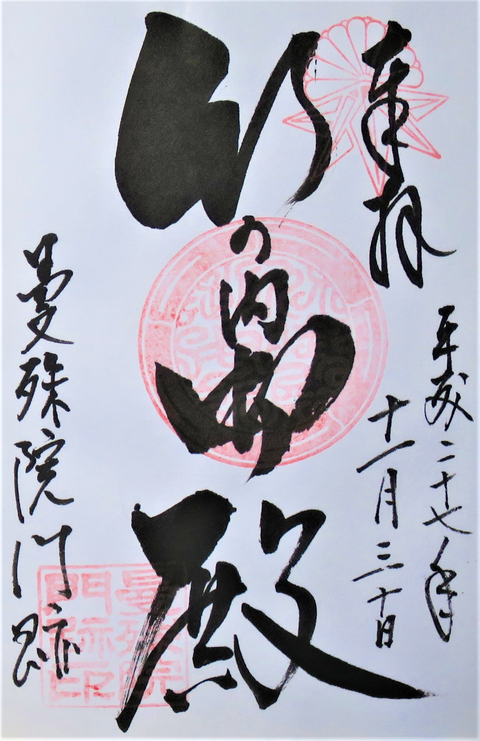 奉拝
平成二十七年
十一月三十日
竹の内御殿
曼殊院門跡
曼殊院
門跡印